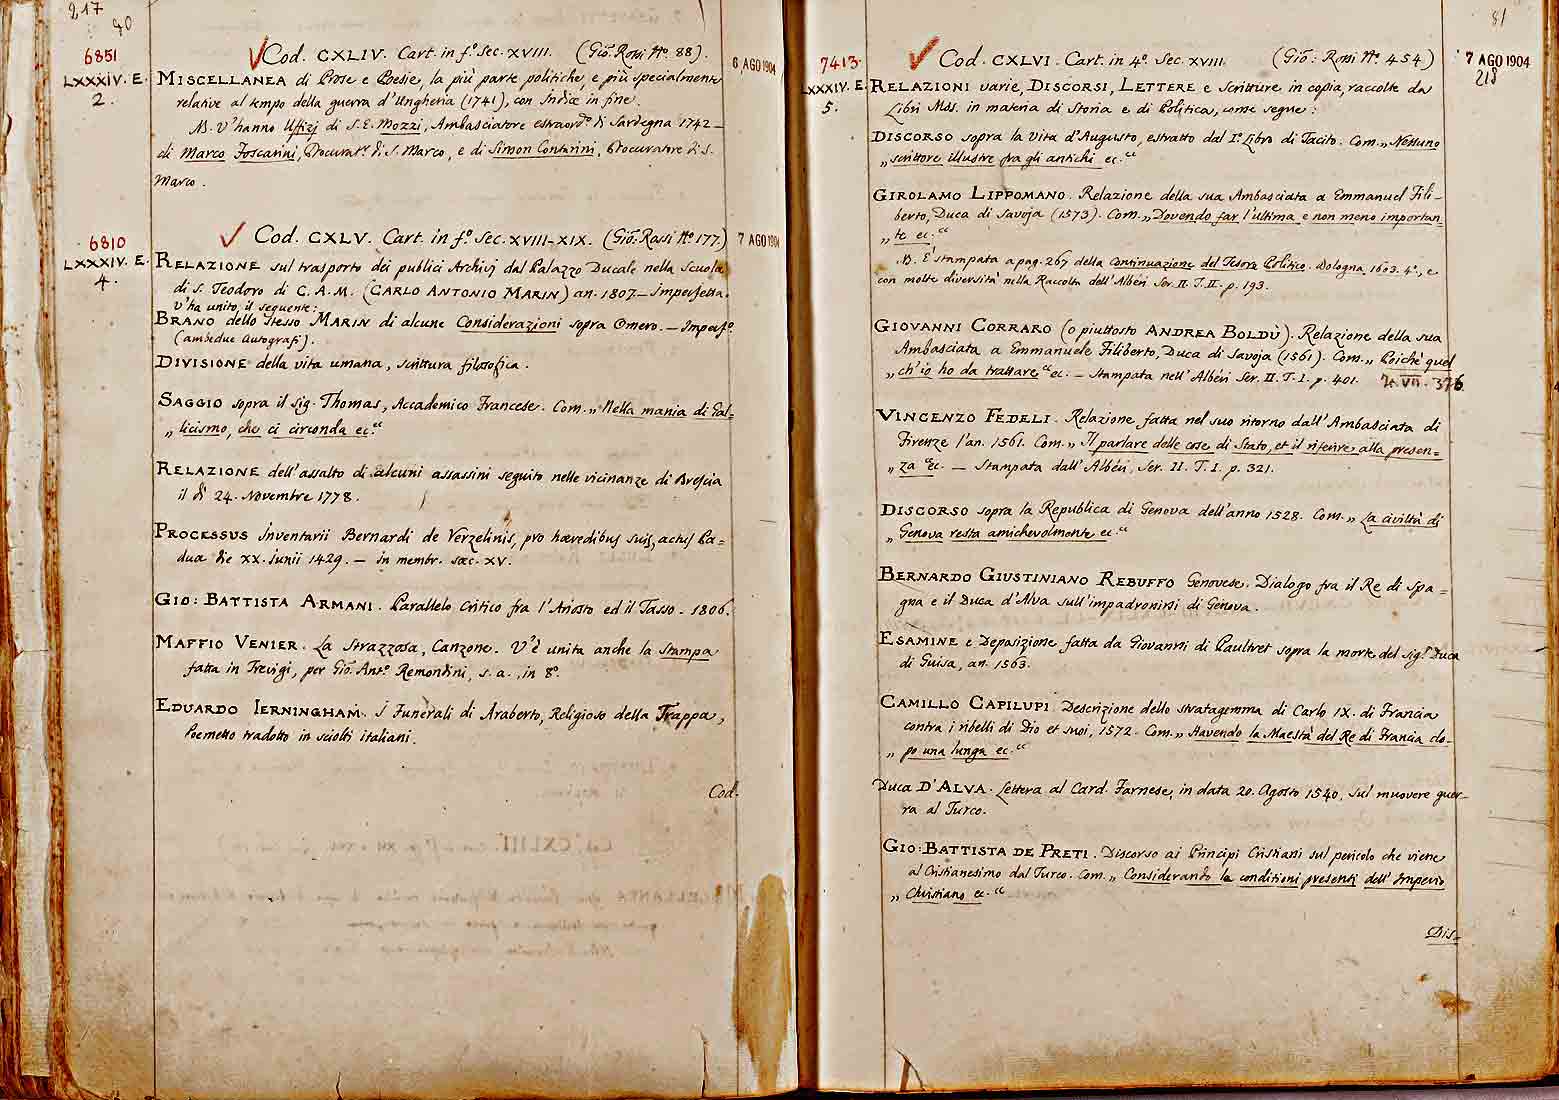 217
80
6851
LXXXIV. E.
2.
Cod. CXLIV. Cart. in f.º Sec. XVIII. (Gio. Rossi Nº 88).
6 AGO 1904
MISCELLANEA di Prose e Poesie, la più parte politiche, e più specialmente
relative al tempo della guerra d'Ungheria (1741), con Indice in fine.
V'hanno Uffizj di S. E. Mozzi, Ambasciatore estraord.º di Sardegna 1742 –
di Marco Foscarini, Procurat.r di S. Marco, e di Simon Contarini, Procuratore di S.
Marco.
6810
LXXXIV. E.
4.
Cod. CXLV. Cart. in f.º Sec. XVIII-XIX. (Gio. Rossi Nº 177.)
7 AGO 1904
RELAZIONE sul trasporto dei publici Archivj dal Palazzo Ducale nella Scuola
di S. Teodoro di C. A. M. (CARLO ANTONIO MARIN) an. 1807 – Imperfetta.
V'ha unito il seguente:
BRANO dello stesso MARIN di alcune Considerazioni sopra Omero. – Imperf.º
(ambedue autografi).
DIVISIONE della vita umana, scrittura filosofica.
SAGGIO sopra il sig. Thomas, Accademico Francese. Com. „ Nella mania di Gal=
„ licismo, che ci circonda ec.“
RELAZIONE dell'assalto di alcuni assassini seguito nelle vicinanze di Brescia
il dì 24. Novembre 1778.
PROCESSUS Inventarii Bernardi de Verzelinis, pro hæredibus suis, actus Pa=
dua die XX. junii 1429. – in membr. sæc. XV.
GIO: BATTISTA ARMANI. Parallelo critico fra l'Ariosto ed il Tasso. 1806.
MAFFIO VENIER. La Strazzosa, Canzone. V'è unita anche la stampa
fatta in Trevigi, per Gio. Ant.º Remondini, s. a., in 8º.
EDUARDO IERNINGHAM. I Funerali di Araberto, Religioso della Trappa,
Poemetto tradotto in sciolti italiani.
Cod.
81
7413
LXXXIV. E.
5.
Cod. CXLVI. Cart. in 4º. Sec. XVIII. (Gio: Rossi Nº 454)
7 AGO 1904
218
RELAZIONI varie, DISCORSI, LETTERE e Scritture in copia, raccolte da
Libri Mss. in materia di Storia e di Politica, come segue:
DISCORSO sopra la Vita d'Augusto, estratto dal I.º Libro di Tacito. Com. „ Nessuno
„ scrittore illustre fra gli antichi ec.“
GIROLAMO LIPPOMANO. Relazione della sua Ambasciata a Emmanuel Fili-
berto, Duca di Savoja (1573). Com. „ Dovendo far l'ultima e non meno importan-
„ te ec.“
È stampata a pag. 267 della Continuazione del Tesoro Politico. Bologna, 1603. 4º., e
con molte diversità nella Raccolta dell'Albèri Ser. II. T. II. p. 193.
GIOVANNI CORRARO (o piuttosto ANDREA BOLDÙ). Relazione della sua
Ambasciata a Emmanuele Filiberto, Duca di Savoja (1561). Com. „ Poichè quel
„ ch'io ho da trattare “ ec. – Stampata nell'Albèri Ser. II. T. I. p. 401.
VINCENZO FEDELI. Relazione fatta nel suo ritorno dall'Ambasciata di
Firenze l'an. 1561. Com. „ Il parlare delle cose di Stato, et il riferire alla presen=
„ za “ ec. – Stampata dall'Albèri, Ser. II. T. I. p. 321.
DISCORSO sopra la Republica di Genova dell'anno 1528. Com. „ La civiltà di
„ Genova resta amichevolmente ec.“
BERNARDO GIUSTINIANO REBUFFO Genovese. Dialogo fra il Re di Spa=
gna e il Duca d'Alva sull'impadronirsi di Genova.
ESAMINE e Deposizione fatta da Giovanni di Paultret sopra la morte del sig.r Duca
di Guisa, an. 1563.
CAMILLO CAPILUPI. Descrizione dello stratagemma di Carlo IX. di Francia
contra i ribelli di Dio et suoi, 1572. Com. „ Havendo la Maestà del Re di Francia do-
„ po una lunga ec.“
Duca D'ALVA. Lettera al Card. Farnese, in data 20. Agosto 1540, sul muovere guer-
ra al Turco.
GIO: BATTISTA DE PRETI. Discorso ai Principi Cristiani sul pericolo che viene
al Cristianesimo dal Turco. Com. „ Considerando le conditioni presenti dell'Imperio
„ Christiano ec.“
Dis=